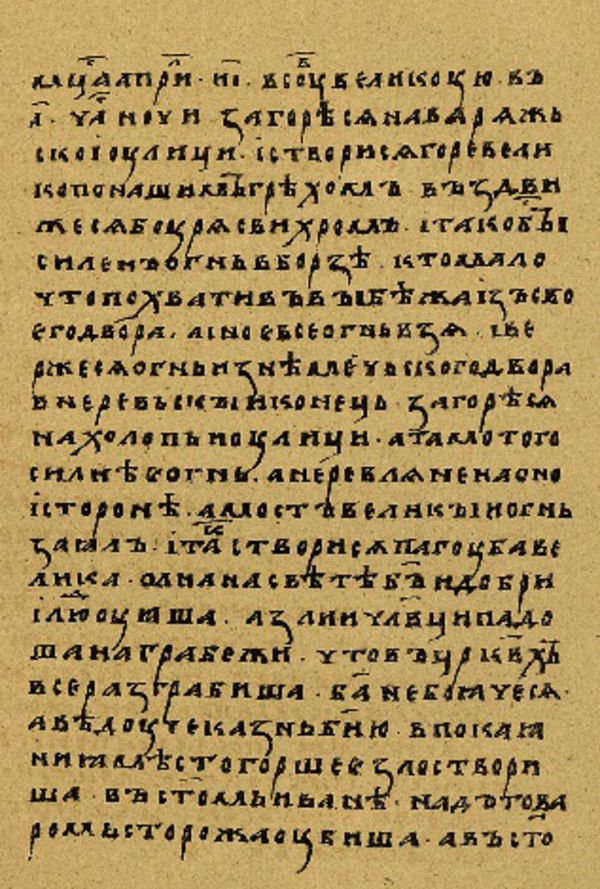 мⷭ҇ца априⷧ҇ · ні҃ · в сꙋⷠ҇ великꙋю · въ
а҃ · чаⷭ҇ нощи загорѣсѧ на варѧжь
скоі ꙋлици · і створисѧ горе вели
ко по нашимъ грѣхомъ въздви
жесѧ бꙋрѧ с вихромь · і тако быⷭ҇
силенъ огнь вборзѣ · кто мало
что похвативъ въıбѣжа ізъ сво
его двора · а іное все огнь взѧ · і ве
ржесѧ огнь из нѣмечьского двора
в неревьскъıи конець загорѣсѧ
на холопьи ꙋлици · а тамо того
силнѣе огнь · а неревлѧне на оно
і сторонѣ · а мостъ великъıи огнь
заꙗлъ · і таⷦ҇ створисѧ пагꙋба ве
лика · ѡли на свѣтѣ бъ҃и добри
і людꙋꙗша · а злии чл҃вци падо
ша на грабежи · что въ црк҃вхъ
все разграбиша · ба҃ не боꙗчесѧ ·
а вѣдꙋче казнь би҃ю · в покаꙗ
ниꙗ мѣсто горшее зло створи
ша · въ ст҃омь иванѣ · надъ това
ромь сторожа ꙋбиша · а въ ст҃о